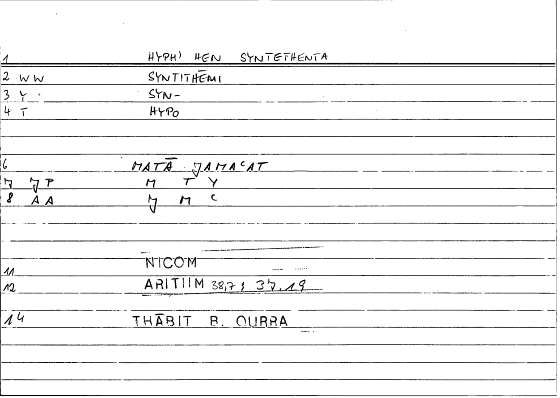 1 HYPH' HEN SYNTETHENTA
2 WW SYNTITHĒMI
3 Y SYN-
4 T HYPO
6 MATĀ JAMAʿAT
7 JP M T Y
8 AA J M ʿ
11 NICOM
12 ARITIIM 38,7; 37.19
14 THĀBIT B. QURRA